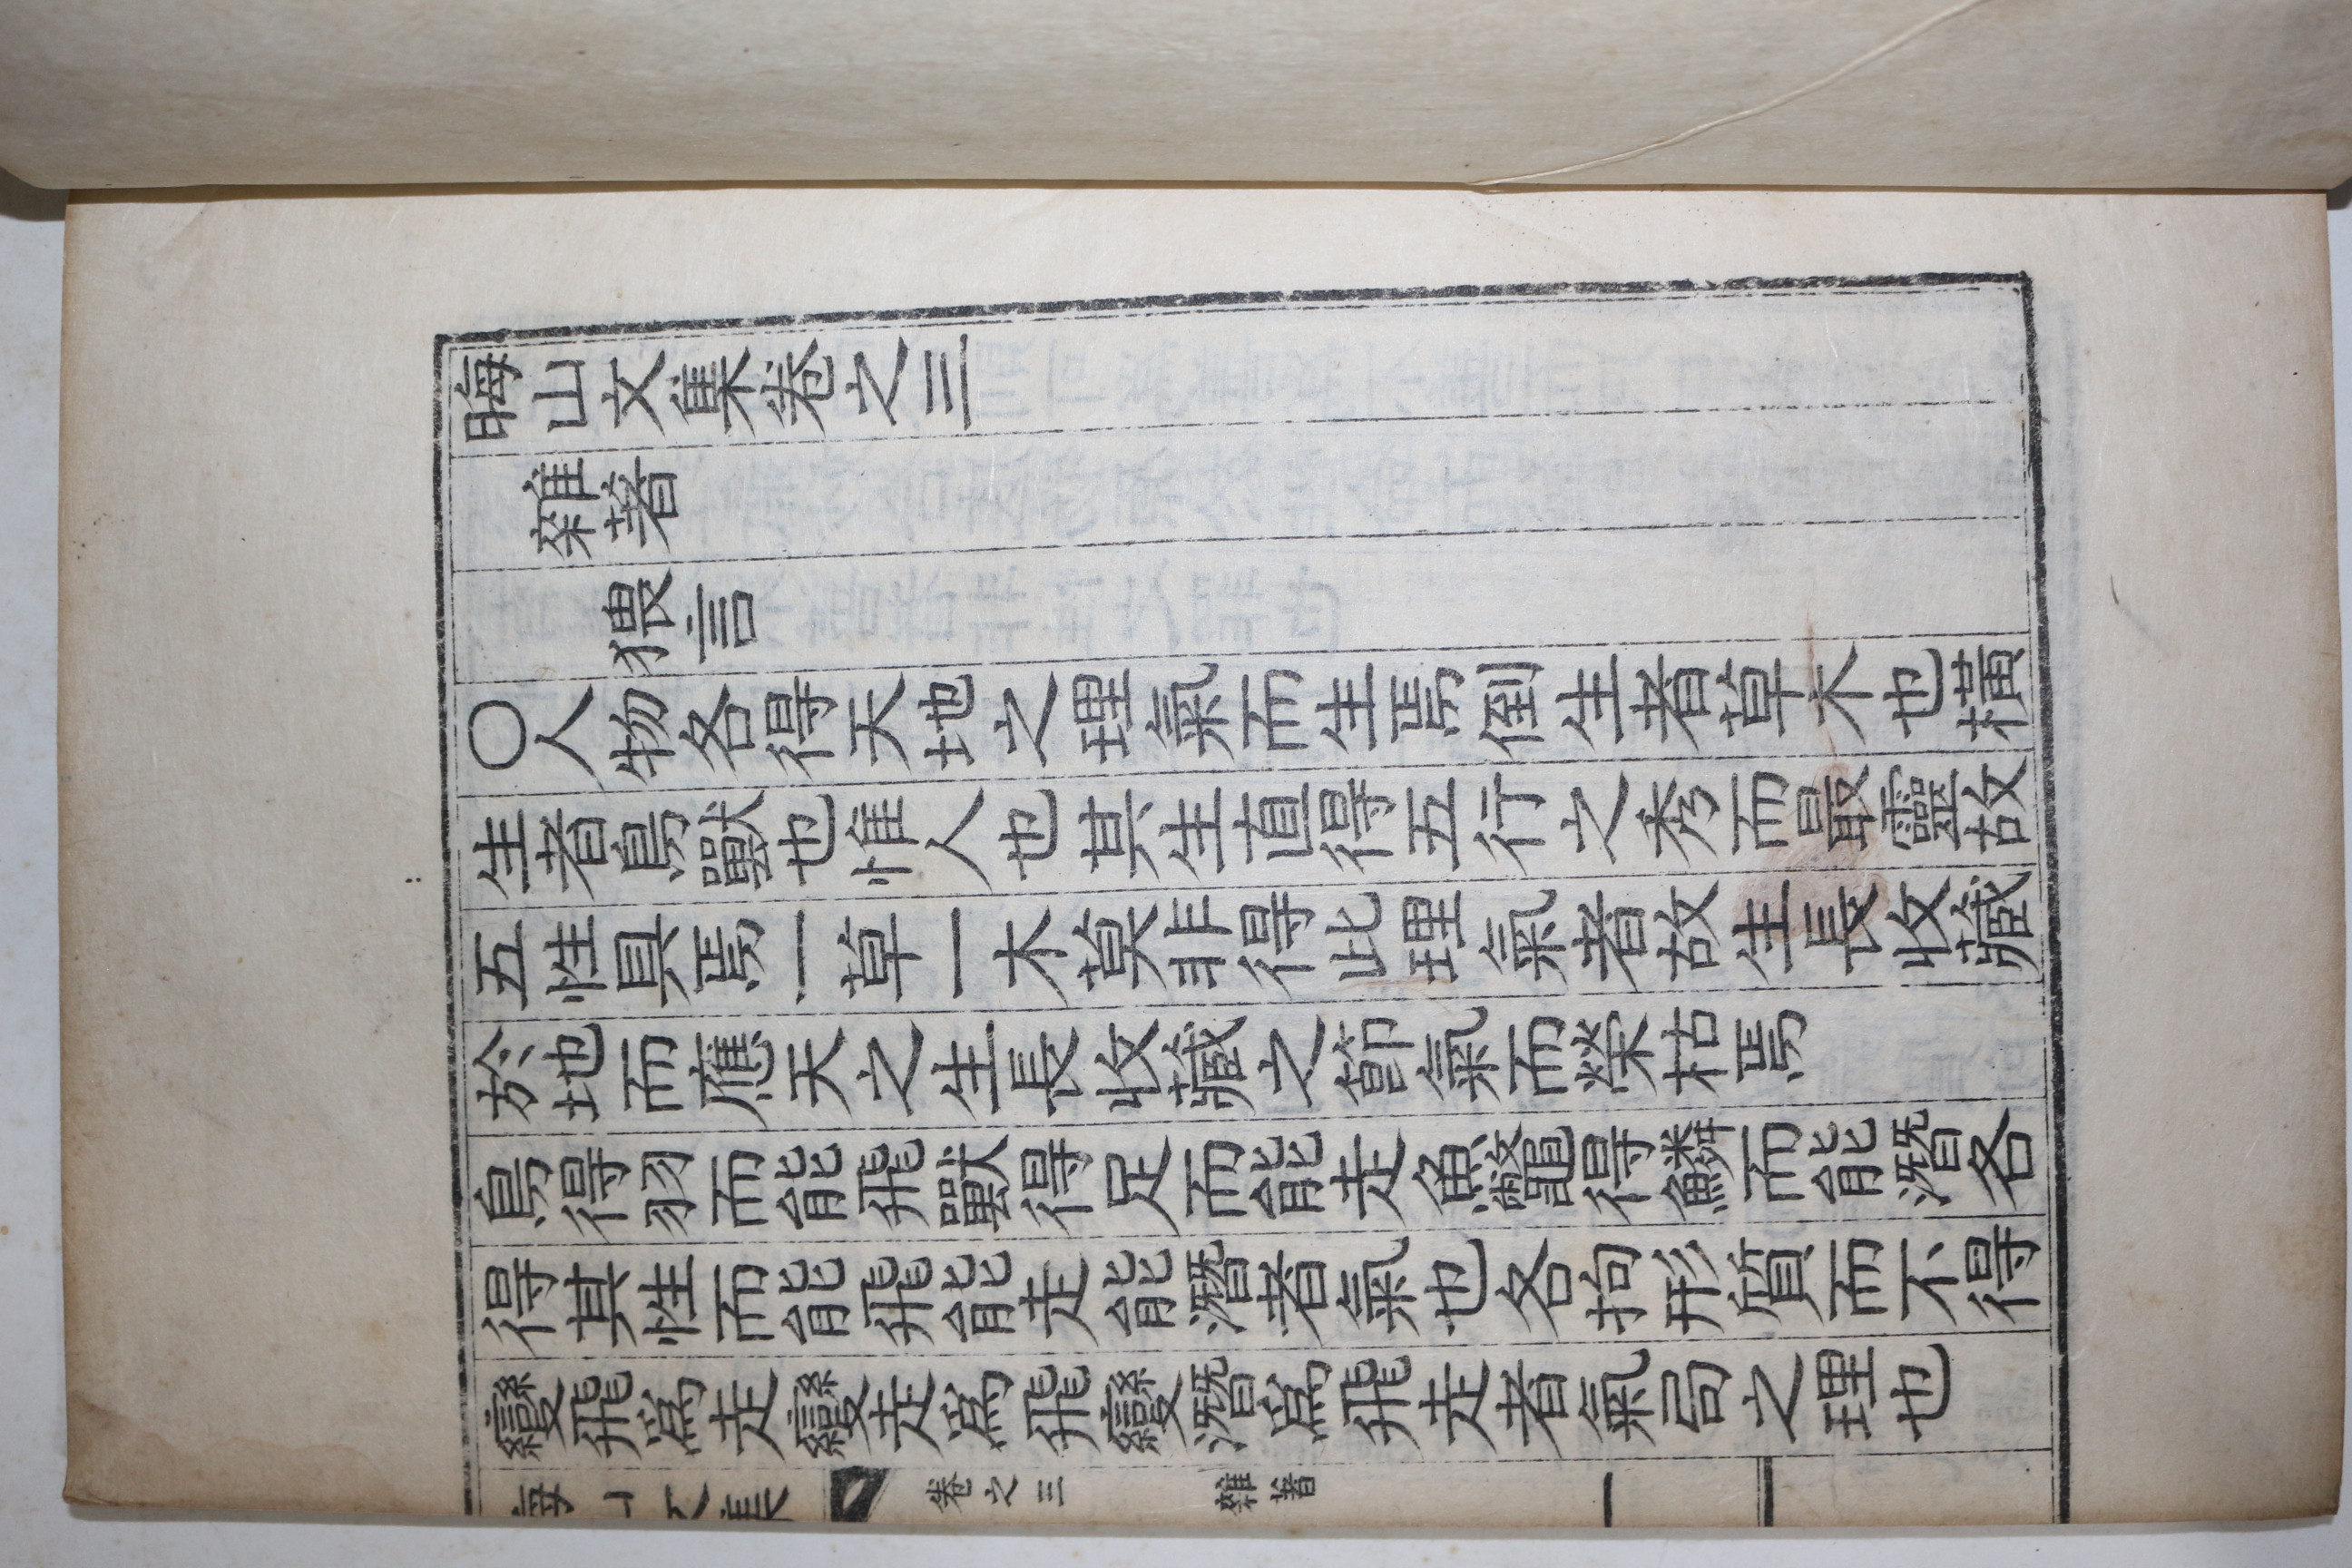 晦山文集卷之三
雜著
猥言
〇人物各得天地之理氣而生焉倒生者草木也橫
生者鳥獸也惟人也其生直得五行之秀而最靈故
五性具焉一草一木莫非得此理氣者故生長收藏
於地而應天之生長收藏之節氣而榮枯焉
鳥得羽而能飛獸得足而能走魚鼈得鱗而能潛各
得其性而能飛能走能潛者氣也各拘形質而不得
變飛爲走變走爲飛變潛爲飛走者氣局之理也
晦山文集 卷之三 雜著 一